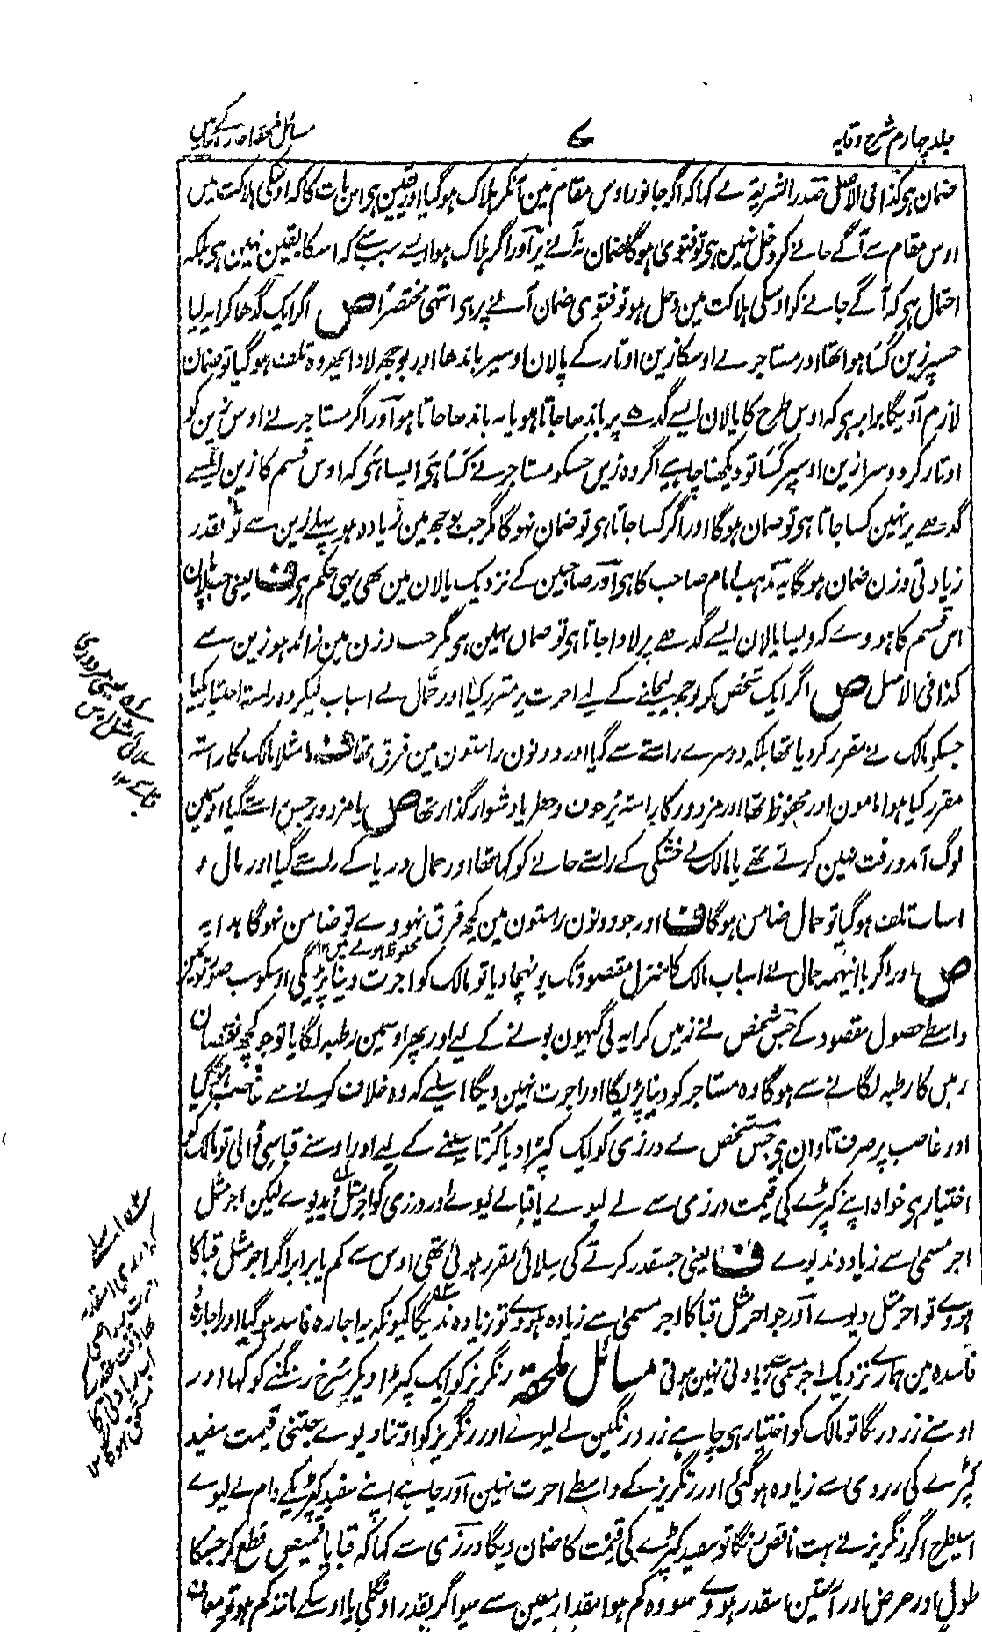 جلد چہارم شرح وقایہ
۷
ضمان ہی کذا فی الاصل صدر الشریعۃ نے کہا کہ اگر جانور اوس مقام مین آنکر ہلاک ہو گیا اور یقین ہی اس بات کا کہ اوسکی ہلاکت مین
اوس مقام سے آگے جانے کو دخل نہین ہی تو فتوی ہوگا ضمان نہ آنے پر اور اگر ہلاک ہوا ایسے سبب سے کہ اسکا یقین نہین ہی بلکہ
احتمال ہی کہ آگے جانے کو اوسکی ہلاکت مین دخل ہو تو فتوی ضمان آنے پر ہی انتہی مختصراً ص اگر ایک گدھا کرایہ لیا
جسپر زین کسا ہوا تھا اور مستاجر نے اوسکا زین اوتار کے پالان اوسپر باندھا اور بوجھ لادا پھر وہ تلف ہو گیا تو ضمان
لازم آویگا برابر ہی کہ اوس طرح کا پالان ایسے گدھے پر باندھا جاتا ہو یا نہ باندھا جاتا ہو اور اگر مستاجر نے اوس زین کو
اوتار کر دوسرا زین اوسپر کسا تو دیکھنا چاہیے اگر وہ زین جسکو مستاجر نے کسا ہی ایسا ہی کہ اوس قسم کا زین ایسے
گدھے پر نہین کسا جاتا ہی تو ضمان ہوگا اور اگر کسا جاتا ہی تو ضمان نہوگا مگر جب بوجھ مین زیادہ ہو پہلے زین سے تو بقدر
زیادتی وزن ضمان ہوگا یہ مذہب امام صاحب کا ہی اور صاحبین کے نزدیک پالان مین بھی یہی حکم ہی ف یعنی جب پالان
اس قسم کا ہووے کہ ویسا پالان ایسے گدھے پر لادا جاتا ہی تو ضمان نہین ہی مگر جب وزن مین زائد ہو زین سے
کذا فی الاصل ص اگر ایک شخص کو بوجھ لیجانے کے لیے اجرت پر مقرر کیا اور حمال نے اسباب لیکر وہ راستہ اختیار کیا
جسکو مالک نے مقرر کر دیا تھا بلکہ دوسرے راستے سے گیا اور دونون راستون مین فرق تھا ف مثلا مالک کا راستہ
مقرر کیا ہوا مامون اور محفوظ تھا اور مزدور کا راستہ پرخوف و خطر یا دشوار گذار تھا ص یا مزدور جس راستے گیا اوسمین
لوگ آمد و رفت نہین کرتے تھے یا مالک نے خشکی کے راستے جانے کو کہا تھا اور حمال دریا کے راستے گیا اور مال و
اسباب تلف ہو گیا تو حمال ضامن ہوگا ف اور جو دونون راستون مین کچھ فرق نہووے تو ضامن نہوگا ہدایہ
ص اور اگر باینہمہ حمال نے اسباب مالک کا منزل مقصود تک پونہچا دیا تو مالک کو اجرت دینا پڑیگی اوسکو سب صورتون مین
واسطے حصول مقصود کے جس شخص نے زمین کرایہ لی گیہون بونے کے لیے اور پھر اوسمین رطبہ لگایا تو جو کچھ نقصان
زمین کا رطبہ لگانے سے ہوگا وہ مستاجر کو دینا پڑیگا اور اجرت نہین دیگا اسلیے کہ وہ خلاف کرنے سے غاصب ہو گیا
اور غاصب پر صرف تاوان ہی جس شخص نے درزی کو ایک کپڑا دیا کرتا سینے کے لیے اور اوسنے قبا سی ڈالی تو مالک کو
اختیار ہی خواہ اپنے کپڑے کی قیمت درزی سے لے لیوے یا قبا لے لیوے اور درزی کو اجر مثل دیدیوے لیکن اجر مثل
اجر مسمی سے زیادہ ندیوے ف یعنی جسقدر کرتے کی سلائی مقرر ہوئی تھی اوس سے کم یا برابر اگر اجر مثل قبا کا
ہووے تو اجر مثل دیوے اور جو اجر مثل قبا کا اجر مسمی سے زیادہ ہووے تو زیادہ ندیگا کیونکہ یہ اجارہ فاسد ہو گیا اور اجارہ
فاسدہ مین ہمارے نزدیک اجر مسمی سے زیادتی نہین ہوتی مسائل ملحقہ رنگریز کو ایک کپڑا دیا کہ سرخ رنگنے کو کہا اور
اوسنے زرد رنگا تو مالک کو اختیار ہی چاہے زرد رنگین لے لیوے اور رنگریز کو اوتنا دیوے جتنی قیمت سفید
کپڑے کی زردی سے زیادہ ہو گئی اور رنگریز کے واسطے اجرت نہین اور چاہے اپنے سفید کپڑیکے دام لے لیوے
اسیطرح اگر رنگریز نے بہت ناقص رنگا تو سفید کپڑے کی قیمت کا ضمان دیگا درزی سے کہا کہ قبا یا قمیص قطع کر جسکا
طول اور عرض اور آستین اسقدر ہووے سو وہ کم ہوا مقدار معین سے سو اگر بقدر اونگلی یا اوسکے مانند کم ہو تو معاف